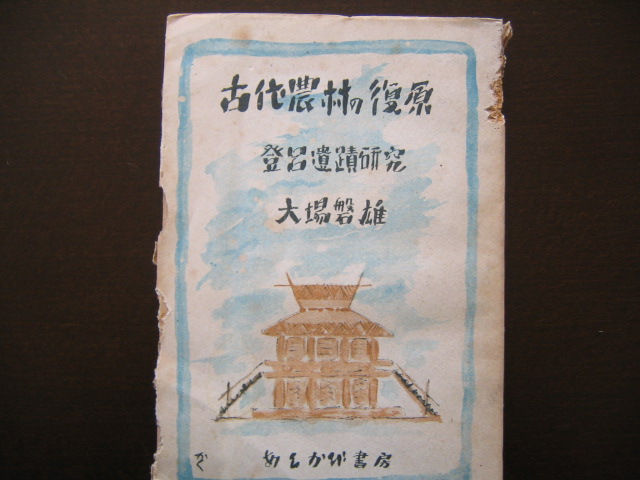 古代農村の復原
登呂遺蹟研究
大場磐雄
あしかび書房